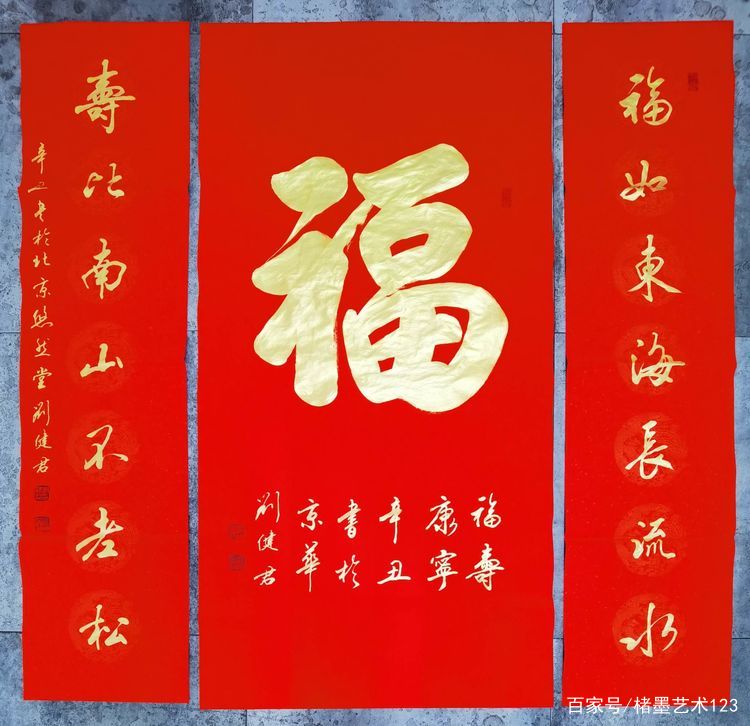 福如東海長流水
福
福壽
康寧
辛丑
書於
京華
劉健君
壽比南山不老松
辛丑書於北京悠然堂劉健君
百家号/楮墨艺术123